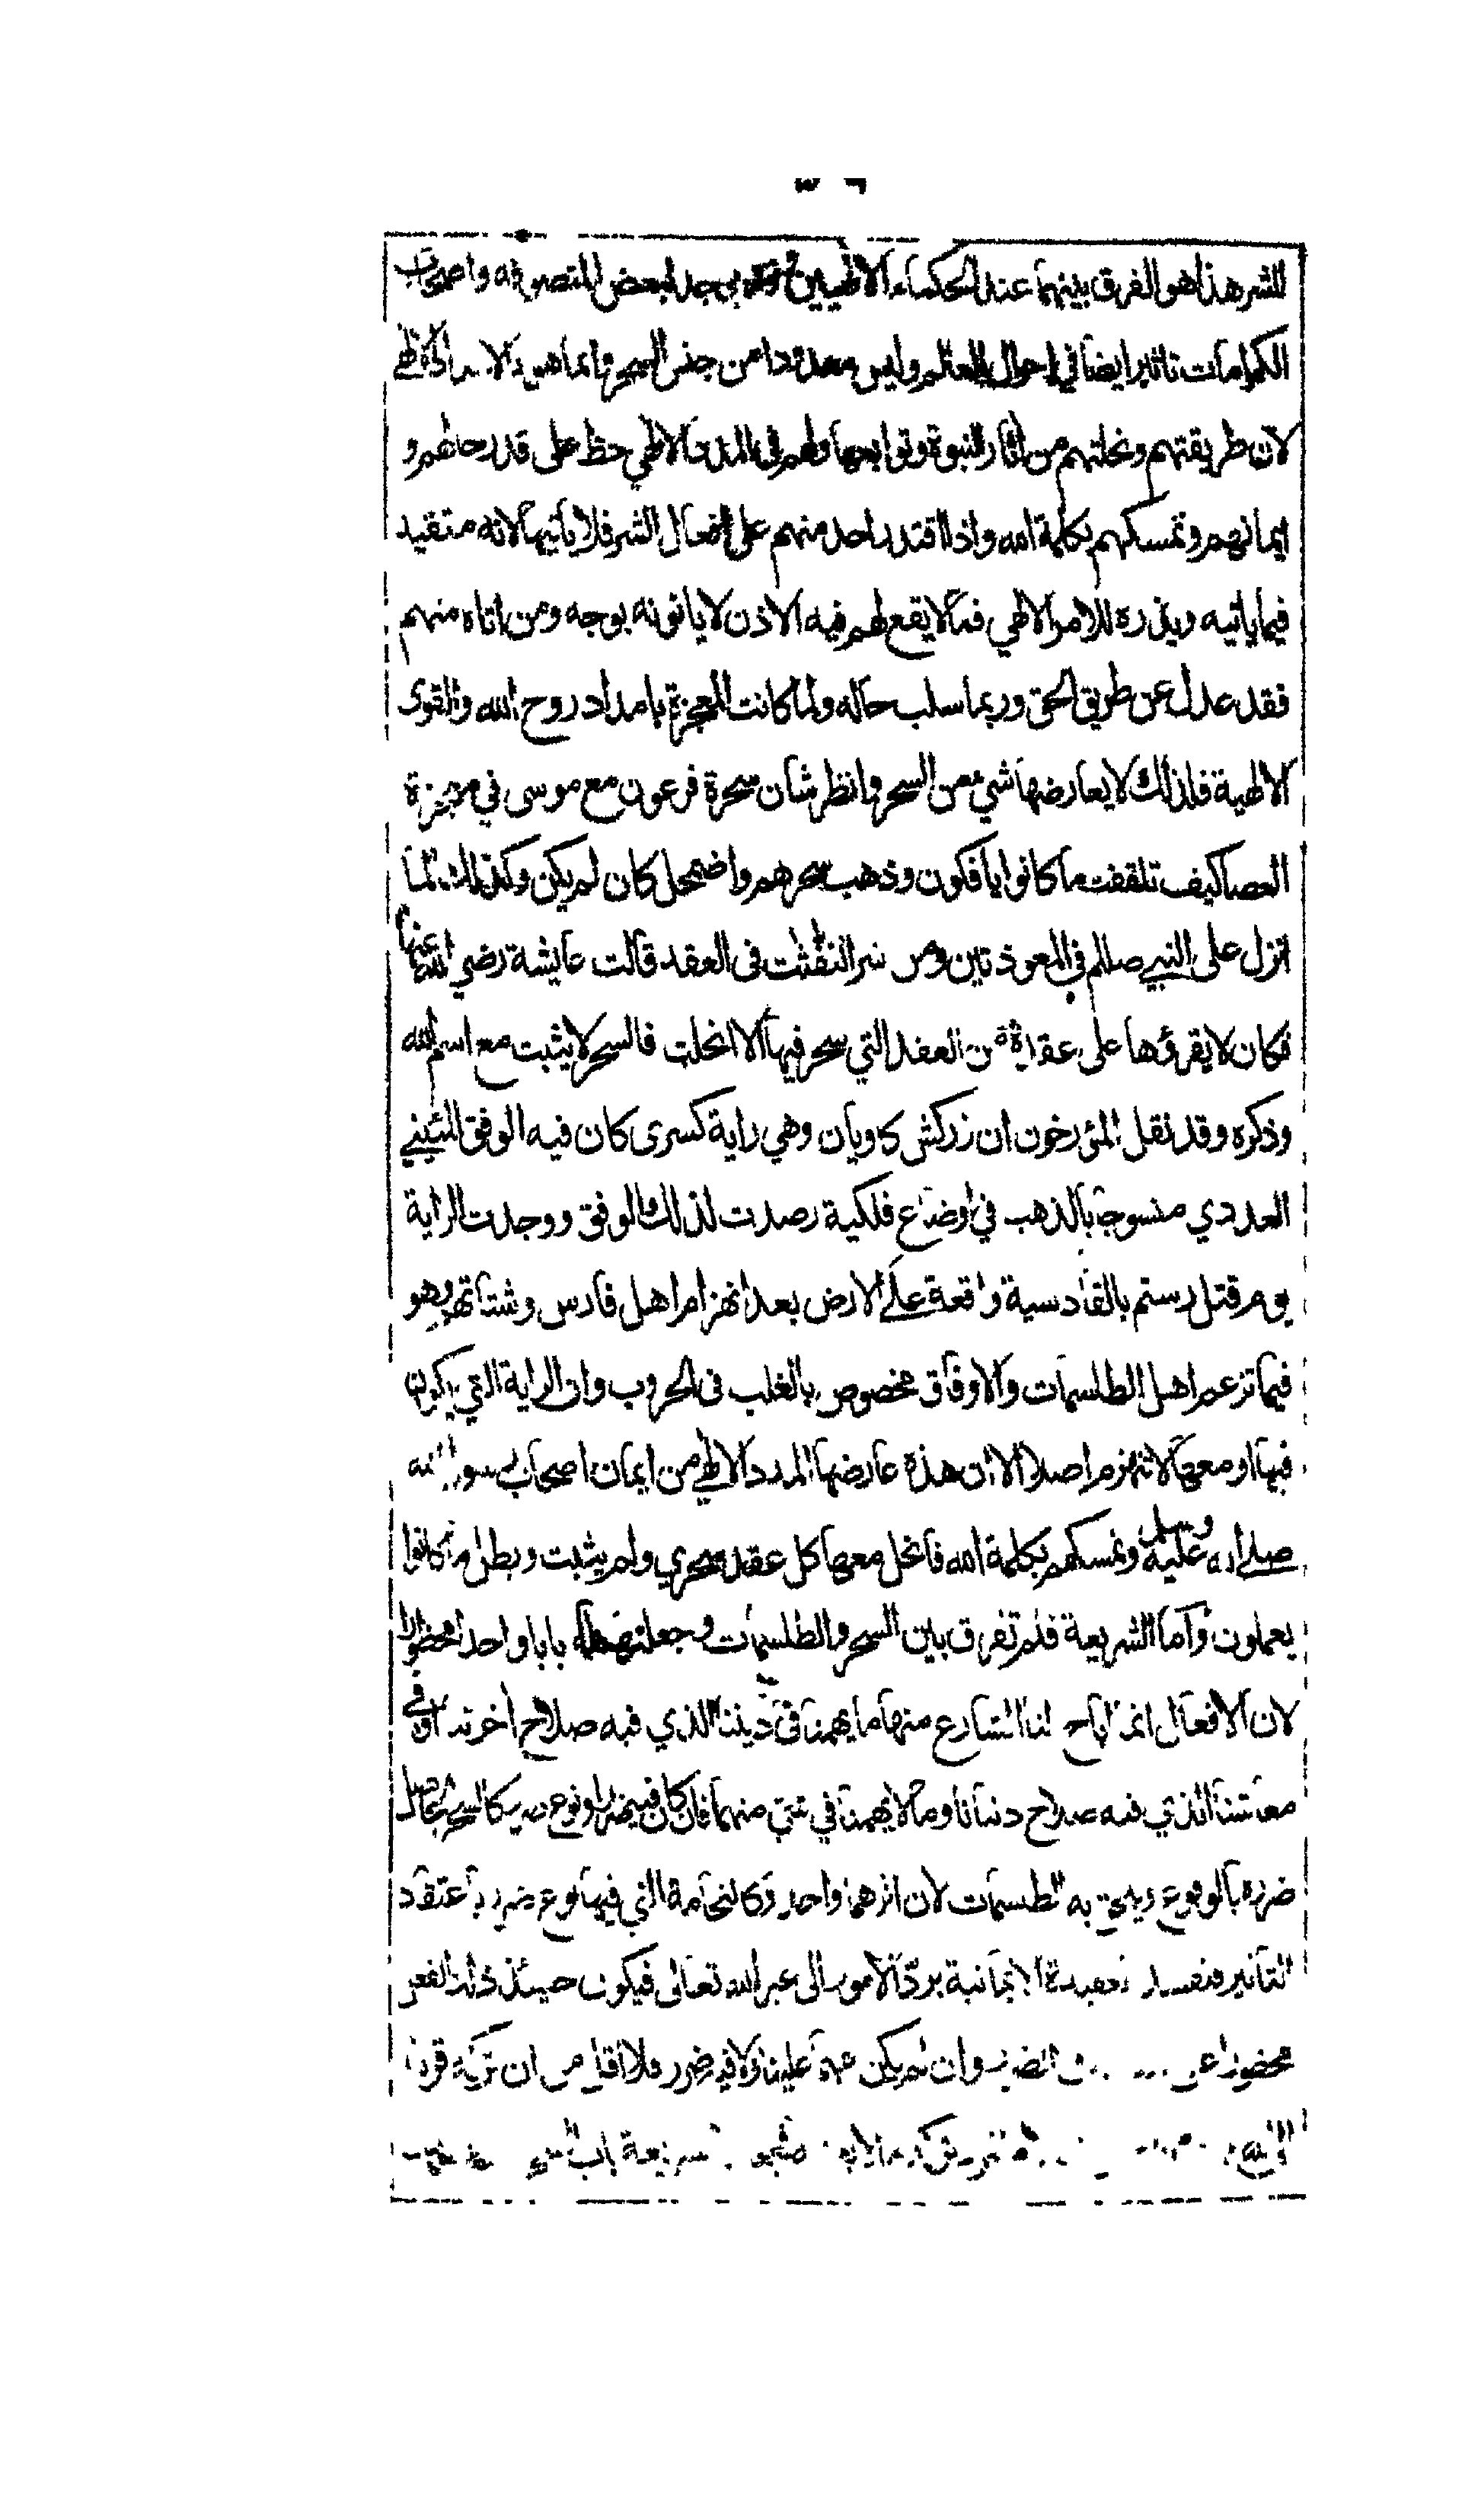 للشر هذا هو الفرق بينهما عند الحكماء الالهيين وقد يوجد لبعض المتصوفه واصحاب
الكرامات تاثير ايضا في احوال العالم وليس معدودا من جنس السحر وانما هو بالامداد الالهي
لان طريقتهم ونحلتهم من اثار النبوة وتوابعها ولهم في المدد الالهي حظ على قدر حالهم و
ايمانهم وتمسكهم بكلمة الله واذا اقتدر احد منهم على افعال الشر فلا ياتيها لانه متقيد
فيما ياتيه ويذره للامر الالهي فما لا يقع لهم فيه الاذن لا ياتونه بوجه ومن اتاه منهم
فقد عدل عن طريق الحق وربما سلب حاله ولما كانت المعجزة بامداد روح الله والقوى
الالهية فلذلك لا يعارضها شيء من السحر وانظر شان سحرة فرعون مع موسى في معجزة
العصا كيف تلقفت ما كانوا يافكون وذهب سحرهم واضمحل كان لم يكن وكذلك لما
انزل على النبي صللم في المعوذتين ومن شر النفثت فى العقد قالت عايشة رضي الله عنها
فكان لا يقرؤها على عقدة من العقد التي سحر فيها الا انحلت فالسحر لا يثبت مع اسم الله
وذكره وقد نقل المئورخون ان زركش كاويان وهي راية كسرى كان فيه الوفق المئيني
العددي منسوجا بالذهب في اوضاع فلكية رصدت لذلك الوفق ووجدت الراية
يوم قتل رستم بالقادسية واقعة على الارض بعد انهزام اهل فارس وشتاتهم وهو
فيما تزعم اهل الطلسمات والاوفاق مخصوص بالغلب فى الحروب وان الراية التي يكون
فيها او معها لا تنهزم اصلا الا ان هذه عارضها المدد الالهي من ايمان اصحاب رسول الله
صلى الله عليه وسلم وتمسكهم بكلمة الله فانحل معها كل عقد سحري ولم يثبت وبطل ما كانوا
يعملون واما الشريعة فلم تفرق بين السحر والطلسمات وجعلتهما بابا واحدا محظورا
لان الافعال انما اباح لنا الشارع منها ما يهمنا فى ديننا الذي فيه صلاح اخرتنا او في
معاشنا الذي فيه صلاح دنيانا وما لا يهمنا في شئ منهما فان كان فيه ضرر او نوع ضرر كالسحر الحاصل
ضرره بالوقوع ويلحق به الطلسمات لان اثرهما واحد وكالنجامة التي فيها نوع ضرر باعتقاد
التاثير فتفسد العقيدة الايمانية برد الامور الى غير الله تعالى فيكون حينئذ ذلك الفعل
محضورا على الضرر وان لم يكن مهما علينا ولا فيه ضرر فلا اقل من ان تركه قربة
الى الله الشريعة باب